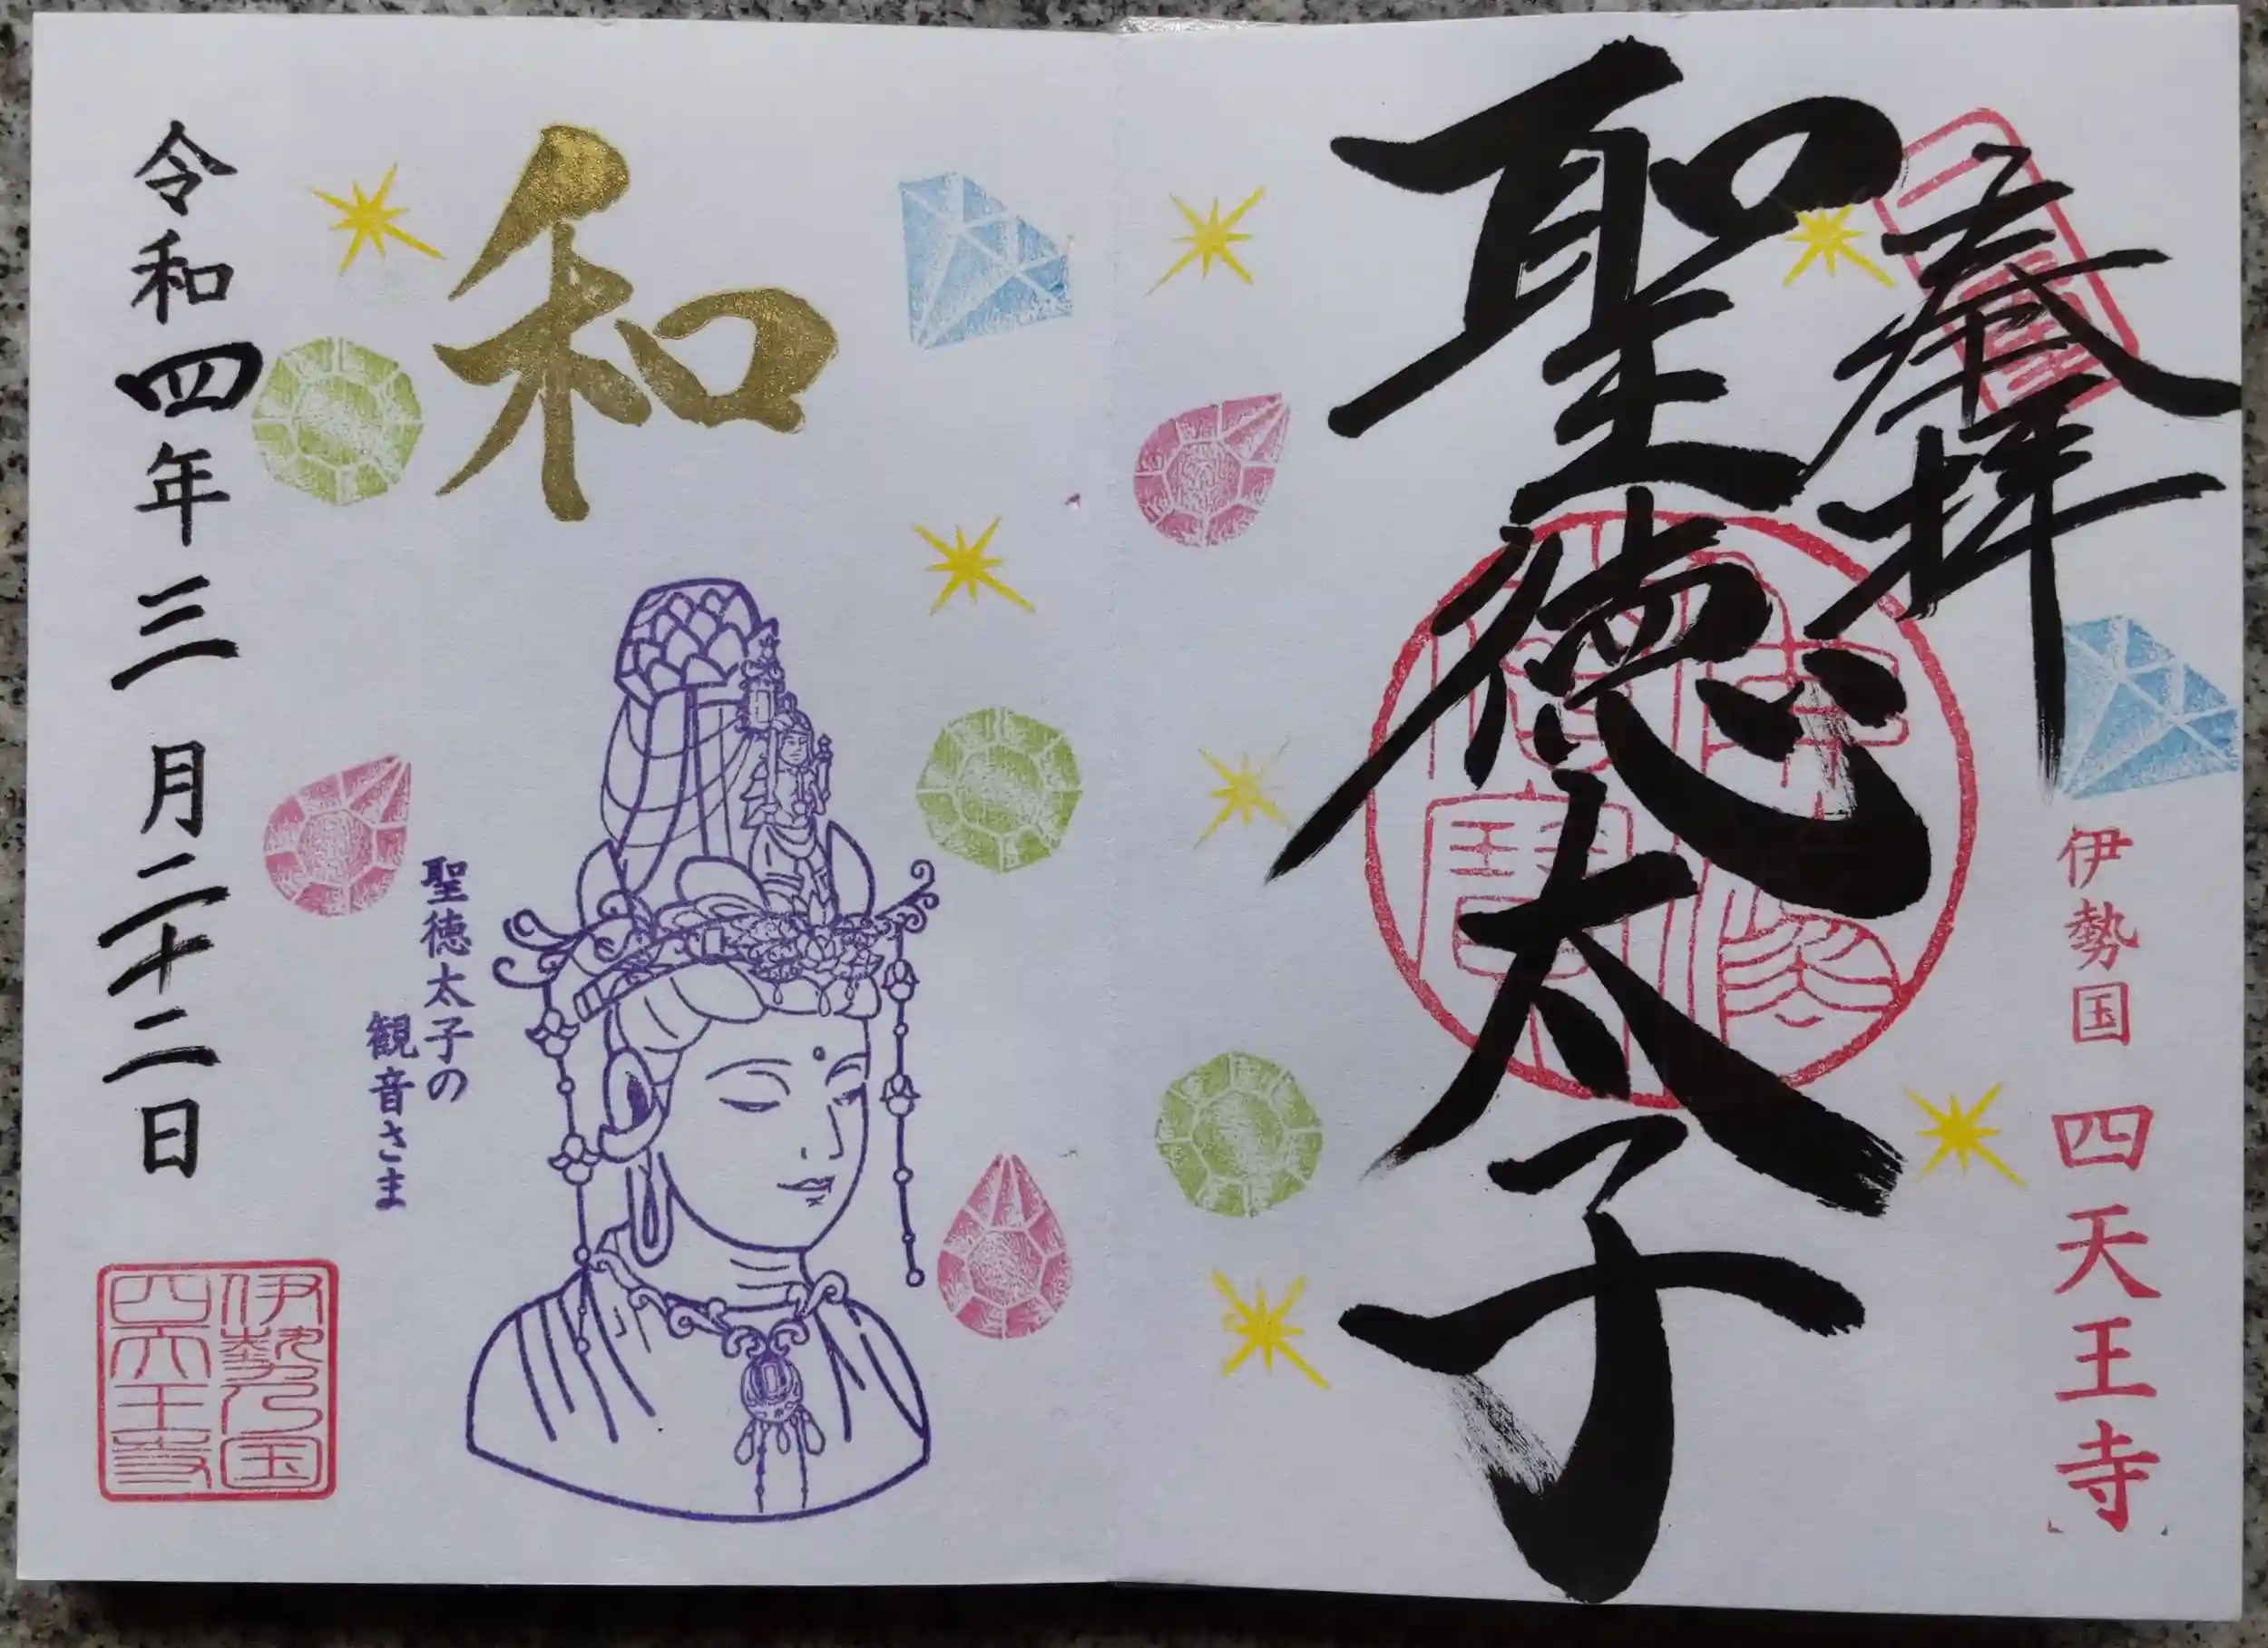 奉拝
伊勢国 四天王寺
聖徳太子
和
聖徳太子の
観音さま
令和四年三月二十二日
伊勢乃国
四天王寺